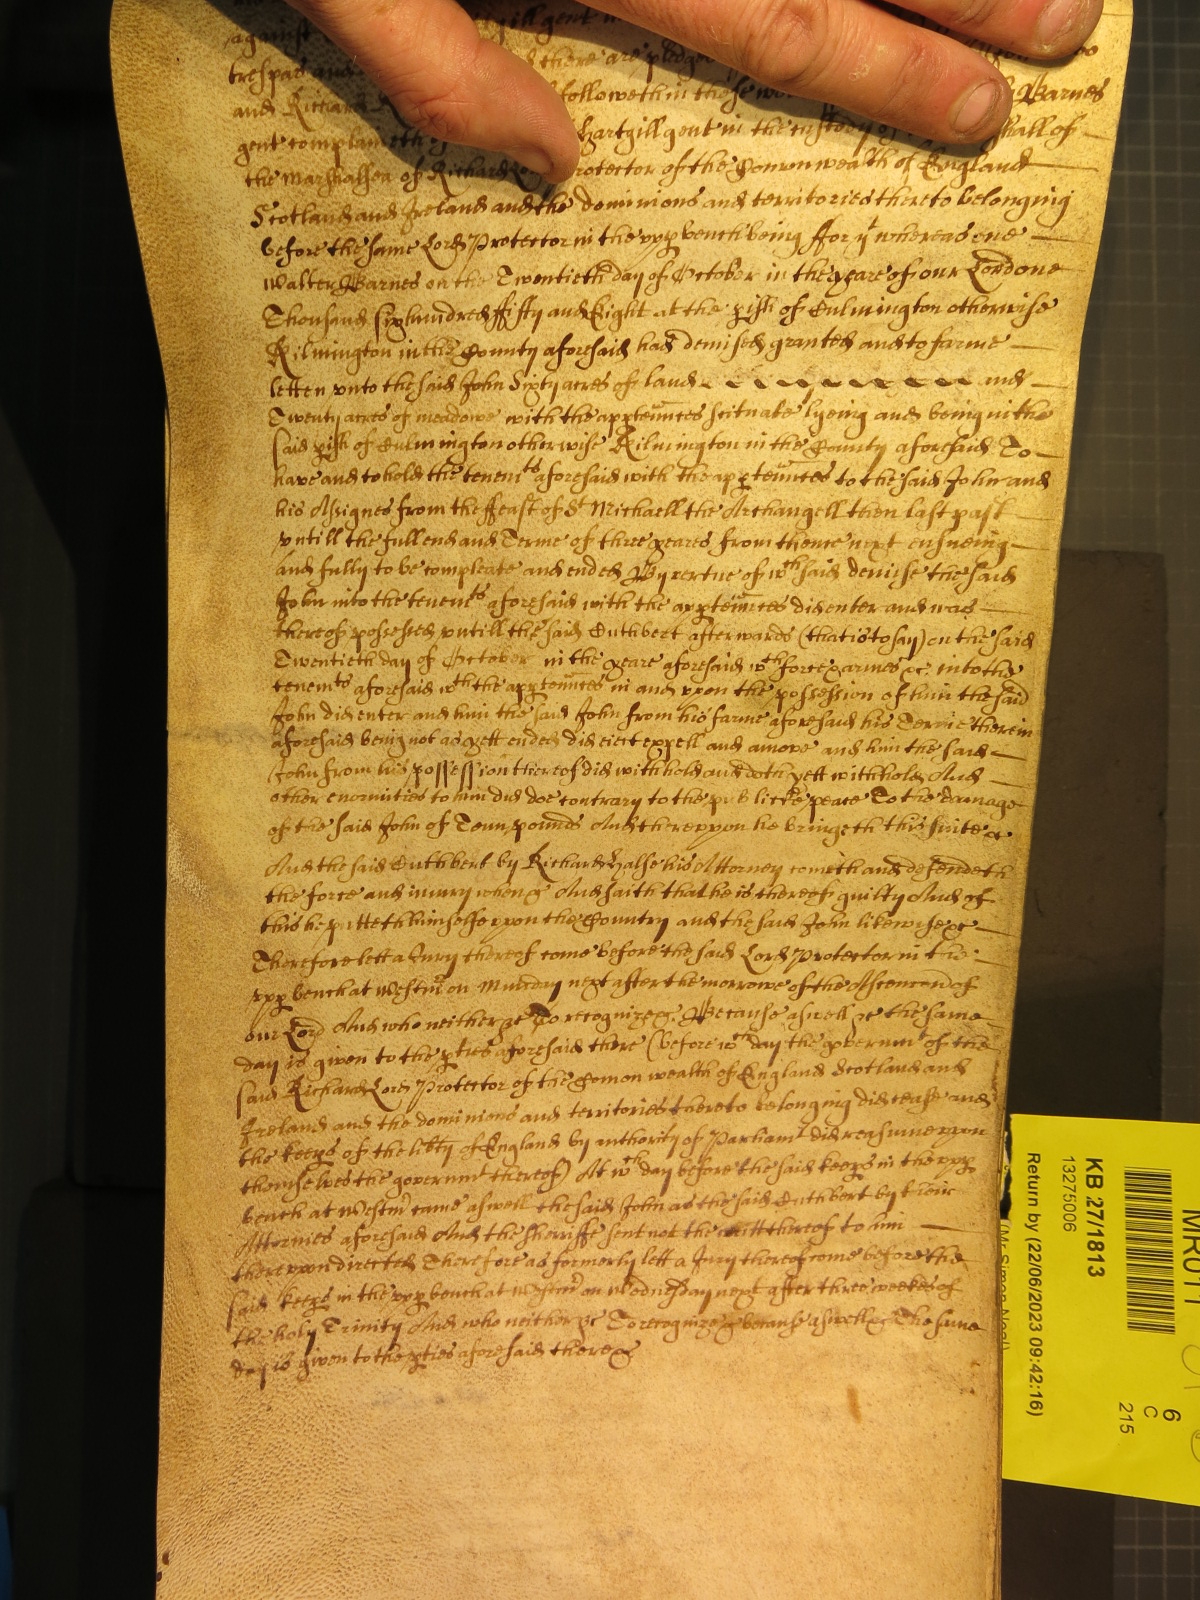 against gill gent
trespas and there are pledges
and Richard followeth in these wor Barnes
gent complaineth Hartgill gent in the custody of shall of
the Marshalsea of Richard Lo rotector of the Comonwealth of England
Scotland and Ireland and the dominions and territories thereto belonging
before the same Lord Protector in the vpp bench being ffor yt whereas one
Walter Barnes on the Twentieth day of October in the yeare of our Lord one
Thousand six hundred ffifty and Eight at the pish of Culmington otherwise
Kilmington in the County aforesaid had demised granted and to farme
letten vnto the said John Sixty acres of land and
Twenty acres of meadowe with the apptennces scituate lyeing and being in the
said pish of Culmington otherwise Kilmington in the County aforesaid To
have and to hold the tenemts aforesaid with the apptennces to the said John and
his Assignes from the ffeast of St Michaell the Archangell then last past
vntill the full end and Terme of three yeares from thence next ensueing
and fully to be compleate and ended By vertue of wch said demise the said
John into the tenemts aforesaid with the apptennces did enter and was
thereof possessed vntill the said Cuthbert afterwards (that is to say) on the said
Twentieth day of October in the yeare aforesaid wth force & armes &c. into the
tenemts aforesaid wth the apptennces in and vpon the possession of him the said
John did enter and him the said John from his farme aforesaid his Terme therein
aforesaid being not as yett ended did eiect expell and amove and him the said
John from his possession thereof did withhold and doth yett withhold And
other enormities to him did doe contrary to the publicke peace To the damage
of the said John of Tenn pounds And therevpon he bringeth this suite &c
And the said Cuthbert by Richard Halse his Attorney cometh and defendeth
the force and iniury when &c And saith that he is thereof guilty And of
this he putteth himselfe vpon the Country and the said John likewise &c
Therefore lett a Jury thereof come before the said Lord Protector in the
vpp bench at Westm on Munday next after the morrowe of the Ascencon of
our Lord And who neither &c To recognize &c. Because aswell &c the same
day is given to the pties aforesaid there (before wch day the governmt of the
said Richard Lord Protector of the Comon wealth of England Scotland and
Ireland and the dominions and territories thereto belonging did cease and
the keeps of the libty of England by authority of Parliamt did reasume vpon
themselves the governmt thereof) At wch day before the said keeps in the vpp
bench at Westm came aswell the said John as the said Cuthbert by their
Attornies aforesaid And the sherriffe sent not the writt thereof to him
therevpon directed Therefore as formerly lett a Jury thereof come before the
said keeps in the vpp bench at Westm on Wednesday next after three weekes of
the holy Trinity And who neither &c To recognize &c because aswell &c The same
day is given to the pties aforesaid there &c
KB 27/1813
13275006
Return by (22/06/2023 09:42:16)
6
C
215